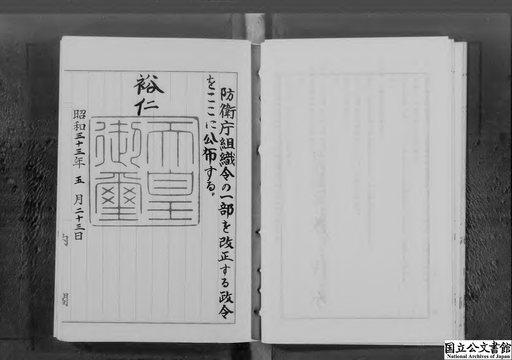 防衛庁組織令の一部を改正する政令
をここに公布する。
裕仁
天皇
御璽
昭和三十三年五月二十三日
内
閣
国立公文書館
National Archives of Japan